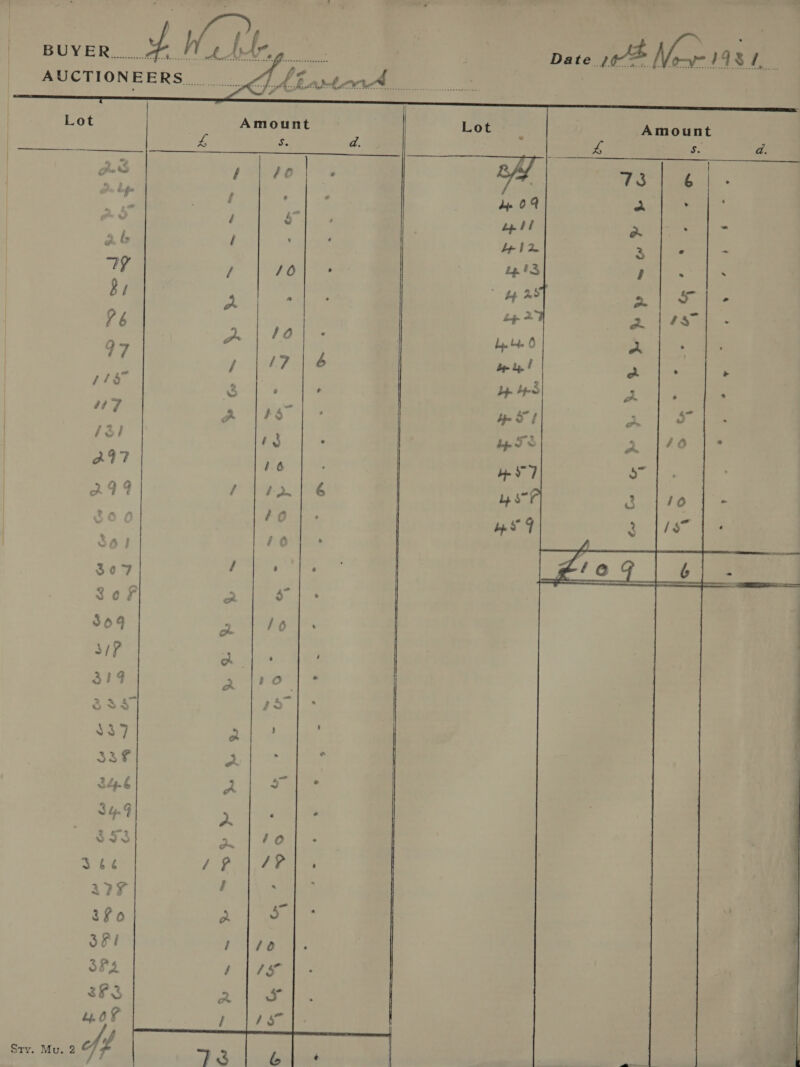 BUYER F. Webb.
AUCTIONEERS Stevens
Date 10th Nov 1931.
Lot Amount
£ s. d.
23 1 10 .
24 1 . .
25 1 5 .
26 1 . .
78 1 10 .
81 2 . .
86 2 10 .
97 1 17 6
115 3 . .
117 2 15 .
131 13 .
297 16 .
299 1 12 6
300 10 .
301 10 .
307 1 . .
308 2 5 .
309 2 10 .
318 2 . .
319 2 10 .
335 15 .
337 2 . .
338 2 . .
346 2 5 .
349 2 . .
353 2 10 .
366 18 18 .
378 1 . .
380 2 5 .
381 1 10 .
382 1 15 .
383 2 5 .
408 1 15 .
c/f 73 6 .
Sty. Mu. 2
Lot Amount
£ s. d.
B/F 73 6 .
409 2 . .
411 2 . .
412 3 . .
413 1 . .
425 2 5 .
427 2 15 .
440 2 . .
441 2 . .
443 2 . .
451 2 5 .
453 2 10 .
457 5 . .
458 3 10 .
459 3 15 .
£109 6 .